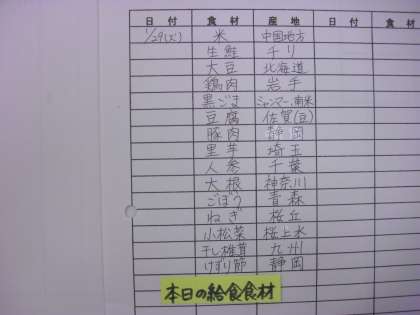 日付 食材 産地 日付 食材
1/29(火) 米 中国地方
生鮭 チリ
大豆 北海道
鶏肉 岩手
黒ごま ミャンマー、南米
豆腐 佐賀(豆)
豚肉 静岡
里芋 埼玉
人参 千葉
大根 神奈川
ごぼう 青森
ねぎ 桜丘
小松菜 桜上水
干し椎茸 九州
けずり節 静岡
本日の給食食材